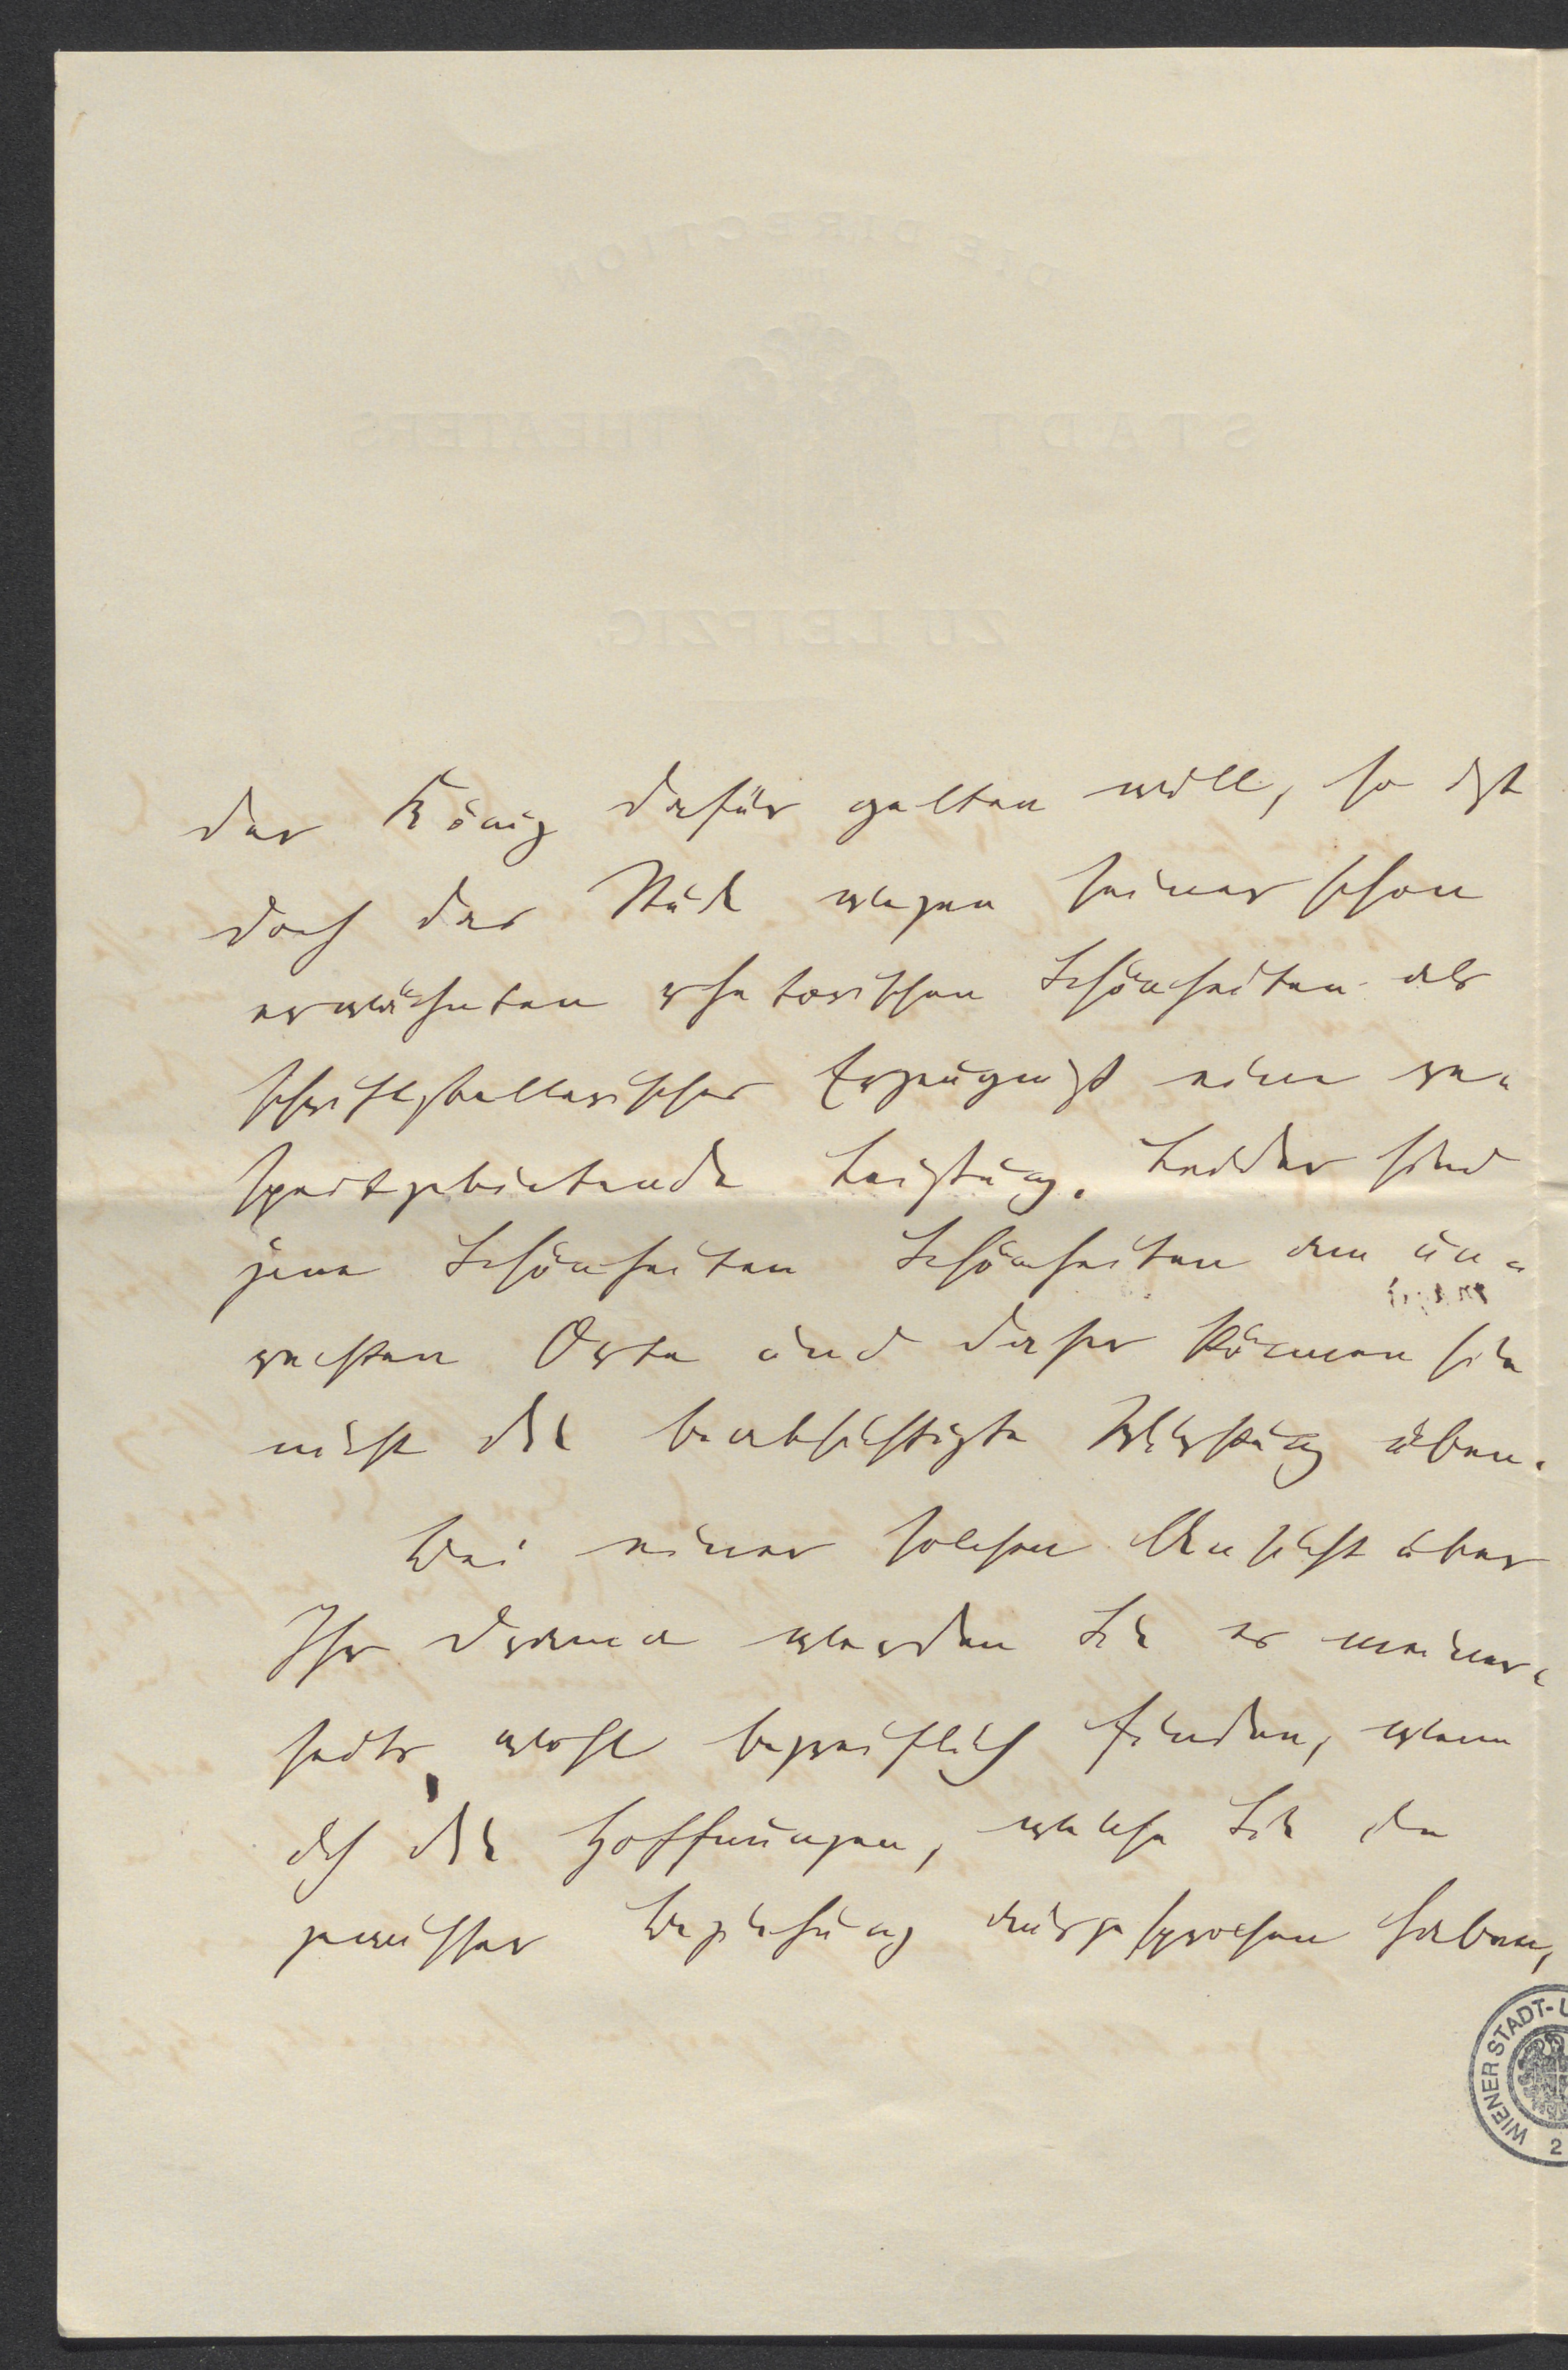 der König dafür gelten will, so ist
doch das Stück wegen seiner schon
erwähnten rhetorischen Schönheiten als
schriftstellerisches Erzeugnißt eine re-
spectgebietende Leistung. Leider sind
jene Schönheiten Schönheiten am un-
rechten Orte und daher können sie
nicht die beabsichtigte Wirkung üben.
Bei einer solchen Ansicht über
Ihr Drama werden Sie es meiner-
seits wohl begreiflich finden, wenn
ich die Hoffnungen, welche Sie in
gewisser Beziehung ausgesprochen haben,
WIENER STADT-U
2